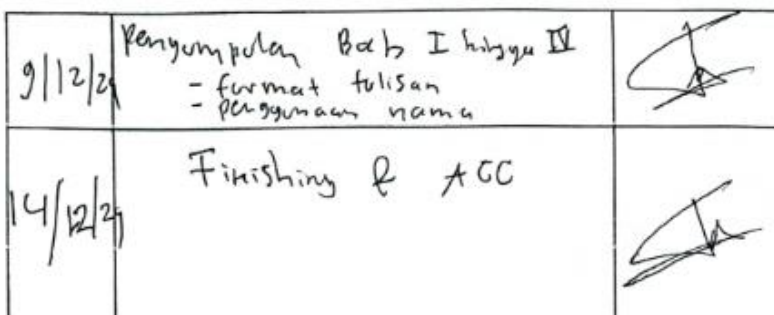 9/12/24
Pengumpulan Bab I hingga IV
- format tulisan
- penggunaan nama
14/12/24
Finishing & ACC